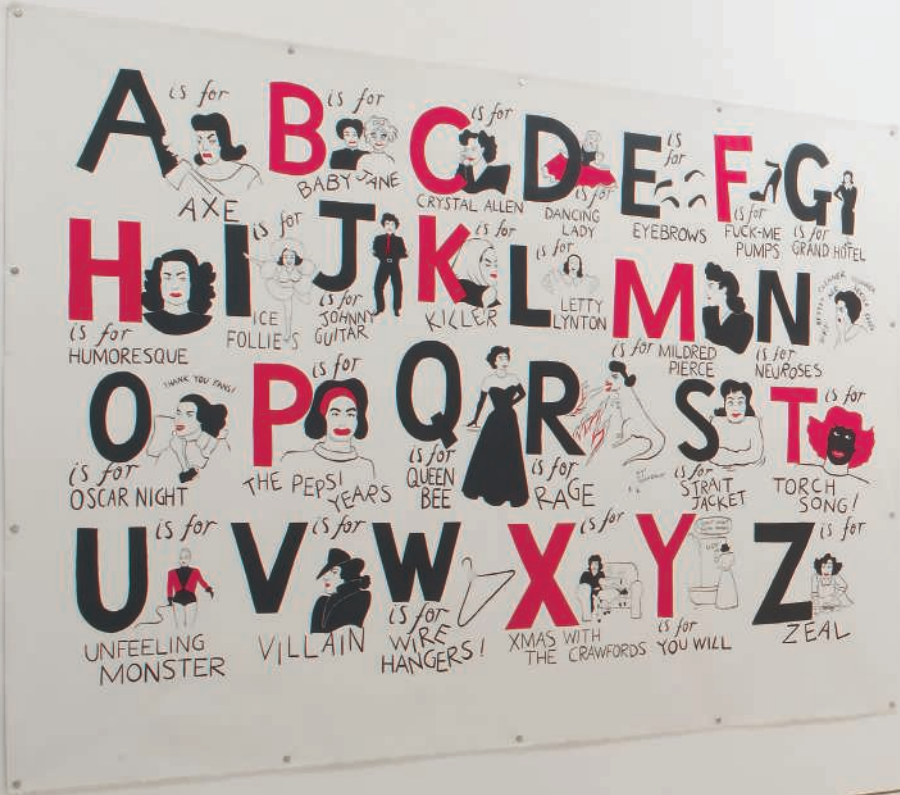 A is for
AXE
B is for
BABY JANE
C is for
CRYSTAL ALLEN
D
is for
DANCING
LADY
E is
for
EYEBROWS
F
is for
FUCK-ME
PUMPS
G
is for
GRAND HOTEL
H
is for
HUMORESQUE
I is for
ICE
FOLLIES
J
is for
JOHNNY
GUITAR
K is for
KILLER
L is for
LETTY
LYNTON
M
is for MILDRED
PIERCE
N
is for
NEUROSES
O
THANK YOU FANS!
is for
OSCAR NIGHT
P is for
THE PEPSI
YEARS
Q
is for
QUEEN
BEE
R
is for
RAGE
S
is for
STRAIT
JACKET
T is for
TORCH
SONG!
U is for
UNFEELING
MONSTER
V is for
VILLAIN
W
is for
WIRE
HANGERS!
X is for
XMAS WITH
THE CRAWFORDS
Y
is for
YOU WILL
Z is for
ZEAL